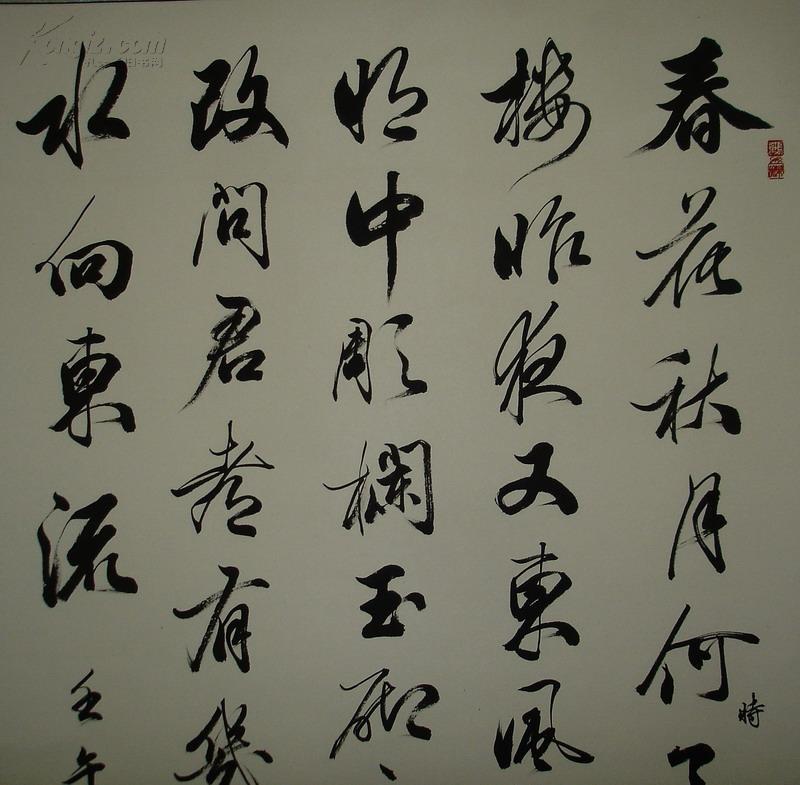 春花秋月何時了
樓昨夜又東風
明中彫欄玉砌
改問君有幾
水向東流
壬午